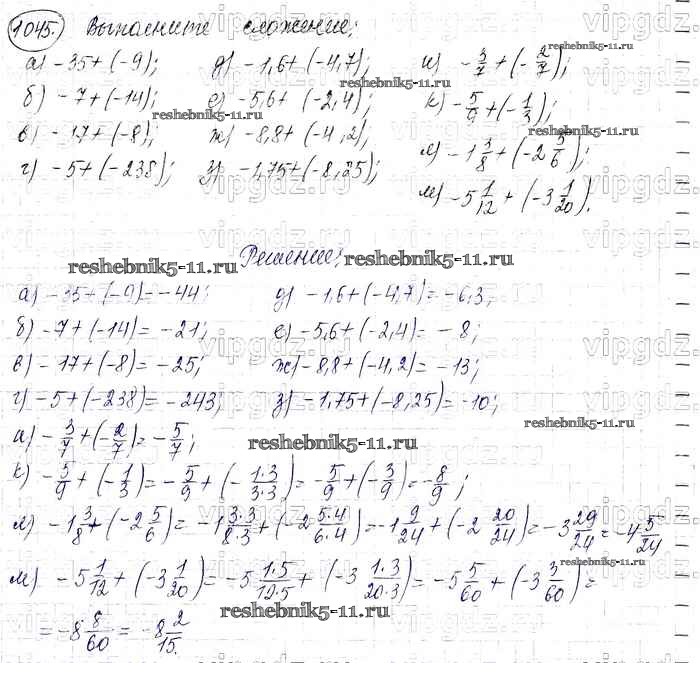 1045.) Выполните сложение:
а) -35+(-9); д) -1,6+(-4,7); и) -3/7+(-2/7);
б) -7+(-14); е) -5,6+(-2,4); к) -5/9+(-1/3);
в) -17+(-8); ж) -8,8+(-4,2); л) -1 3/8+(-2 5/6);
г) -5+(-238); з) -1,75+(-8,25); м) -5 1/12+(-3 1/20).
Решение:
а) -35+(-9)=-44; д) -1,6+(-4,7)=-6,3;
б) -7+(-14)=-21; е) -5,6+(-2,4)=-8;
в) -17+(-8)=-25; ж) -8,8+(-4,2)=-13;
г) -5+(-238)=-243; з) -1,75+(-8,25)=-10;
и) -3/7+(-2/7)=-5/7;
к) -5/9+(-1/3)=-5/9+(-1·3/3·3)=-5/9+(-3/9)=-8/9;
л) -1 3/8+(-2 5/6)=-1 3·3/8·3+(-2 5·4/6·4)=-1 9/24+(-2 20/24)=-3 29/24=-4 5/24
м) -5 1/12+(-3 1/20)=-5 1·5/12·5+(-3 1·3/20·3)=-5 5/60+(-3 3/60)=
=-8 8/60=-8 2/15.
reshebnik5-11.ru
vipgdz.ru